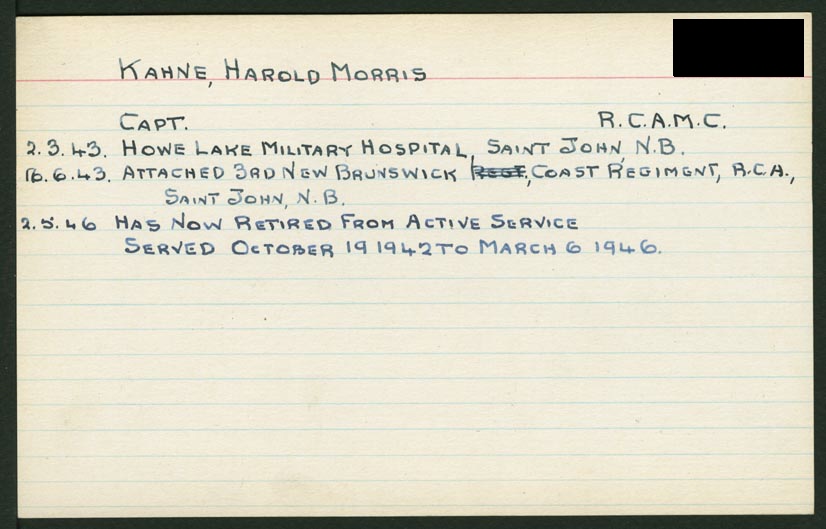 KAHNE, HAROLD MORRIS
CAPT. R.C.A.M.C.
2.3.43. HOWE LAKE MILITARY HOSPITAL, SAINT JOHN, N.B.
16.6.43. ATTACHED 3RD NEW BRUNSWICK REGT, COAST REGIMENT, R.C.A.,
SAINT JOHN, N.B.
2.5.46 HAS NOW RETIRED FROM ACTIVE SERVICE
SERVED OCTOBER 19 1942 TO MARCH 6 1946.